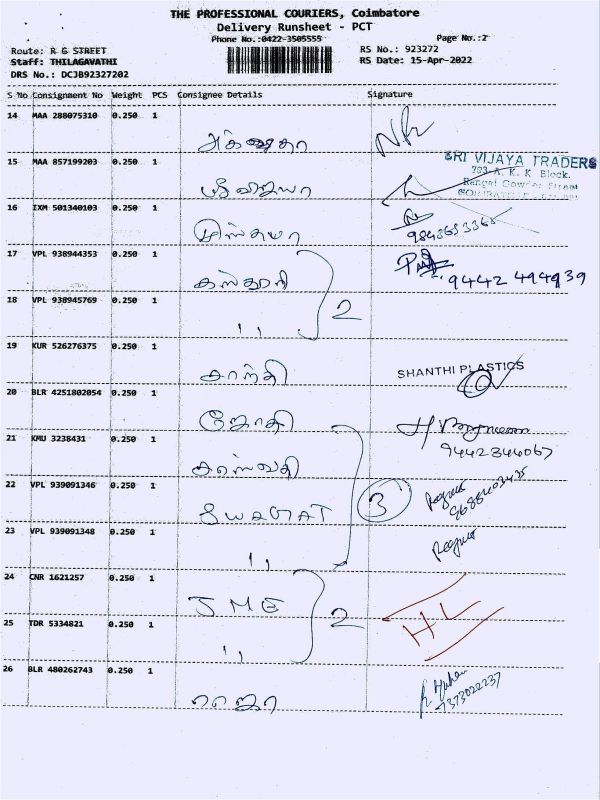 THE PROFESSIONAL COURIERS, Coimbatore
Delivery Runsheet - PCT
Phone No.:0422-3505555
Page No.:2
Route: R G STREET
RS No.: 923272
Staff: THILAGAVATHI
RS Date: 15-Apr-2022
DRS No.: DCJB92327202
S No Consignment No Weight PCS Consignee Details Signature
14 MAA 288075310 0.250 1
15 MAA 857199203 0.250 1 ஸ்ரீ விஜயா
SRI VIJAYA TRADERS
793, A. K. K Block.
Rangai Gowder Street
16 IXM 501340103 0.250 1
17 VPL 938944353 0.250 1 கஸ்தூரி 2
9442 494939
18 VPL 938945769 0.250 1 ,,
19 KUR 526276375 0.250 1 சாந்தி
SHANTHI PLASTICS
20 BLR 4251802054 0.250 1 ஜோதி
9442344067
21 KMU 3238431 0.250 1 சரஸ்வதி
22 VPL 939091346 0.250 1 SWAGAT 3
23 VPL 939091348 0.250 1 ,,
24 CNR 1621257 0.250 1 JME 2
HL
25 TDR 5334821 0.250 1 ,,
26 BLR 480262743 0.250 1 ராஜா
7373022237